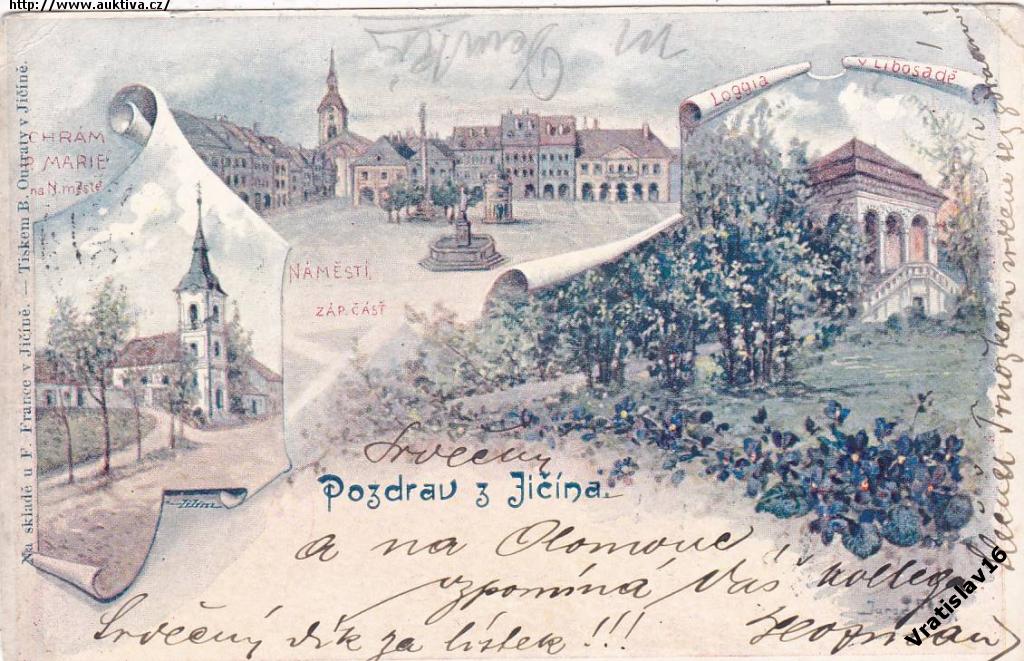 http://www.auktiva.cz/
Na skladě u F. France v Jičíně. — Tiskem B. Outraty v Jičíně.
CHRÁM
P. MARIE
na N. městě
NÁMĚSTÍ,
ZÁP. ČÁSŤ
Loggia
v Libosadě
Srdečný
Pozdrav z Jičína.
a na Olomouc
vzpomíná Váš kolleg
Srdečný dík za lístek!!!
Hofman
Vratislav16